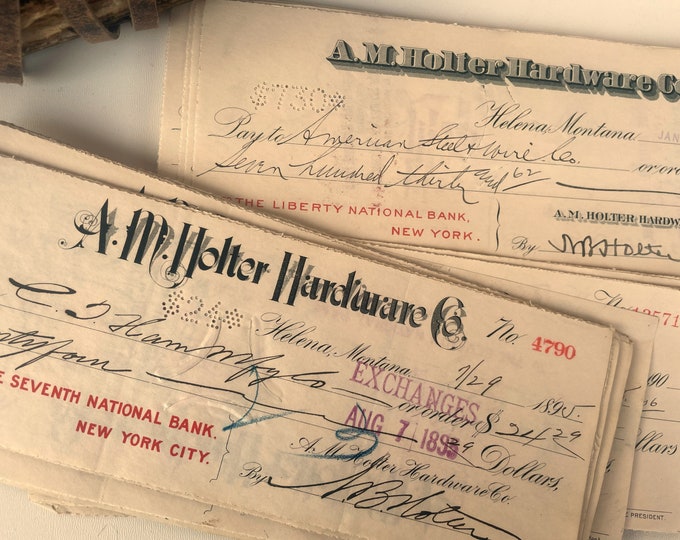 A.M. Holter Hardware Co
$730*
Helena, Montana, JAN
Pay to American Steel & Wire Co. or or
Seven hundred thirty and 62
THE LIBERTY NATIONAL BANK,
NEW YORK.
A. M. HOLTER HARDW
By N B Holter
A.M. Holter Hardware Co.
$24*
No. 4790
Helena, Montana, 7/29 1895.
C. T. Ham Mfg Co or order $ 24 29
EXCHANGES
AUG 7 1895
29 Dollars,
SEVENTH NATIONAL BANK.
NEW YORK CITY.
A. M. Holter Hardware Co.
By N.B. Holter
12571
90
Dollars
PRESIDENT.